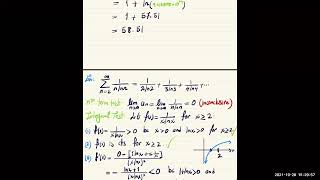 = 1 + 57.51
= 58.51
∑ n=2 ∞ 1/(n ln n) = 1/(2 ln 2) + 1/(3 ln 3) + 1/(4 ln 4) + ...
nth term test: lim n→∞ un = lim n→∞ 1/(n ln n) = 0 (inconclusive)
Integral Test: Let f(x) = 1/(x ln x) for x ≥ 2
(1) f(x) = 1/(x ln x) > 0 bc x > 0 and ln x > 0 for x ≥ 2
(2) f(x) is cts for x ≥ 2
(3) f'(x) = 0 - [ln x + x · 1/x] / (x ln x)²
= - (ln x + 1)/(x ln x)² < 0 bc 1 + ln x > 0 and
2021-10-28 15:29:57